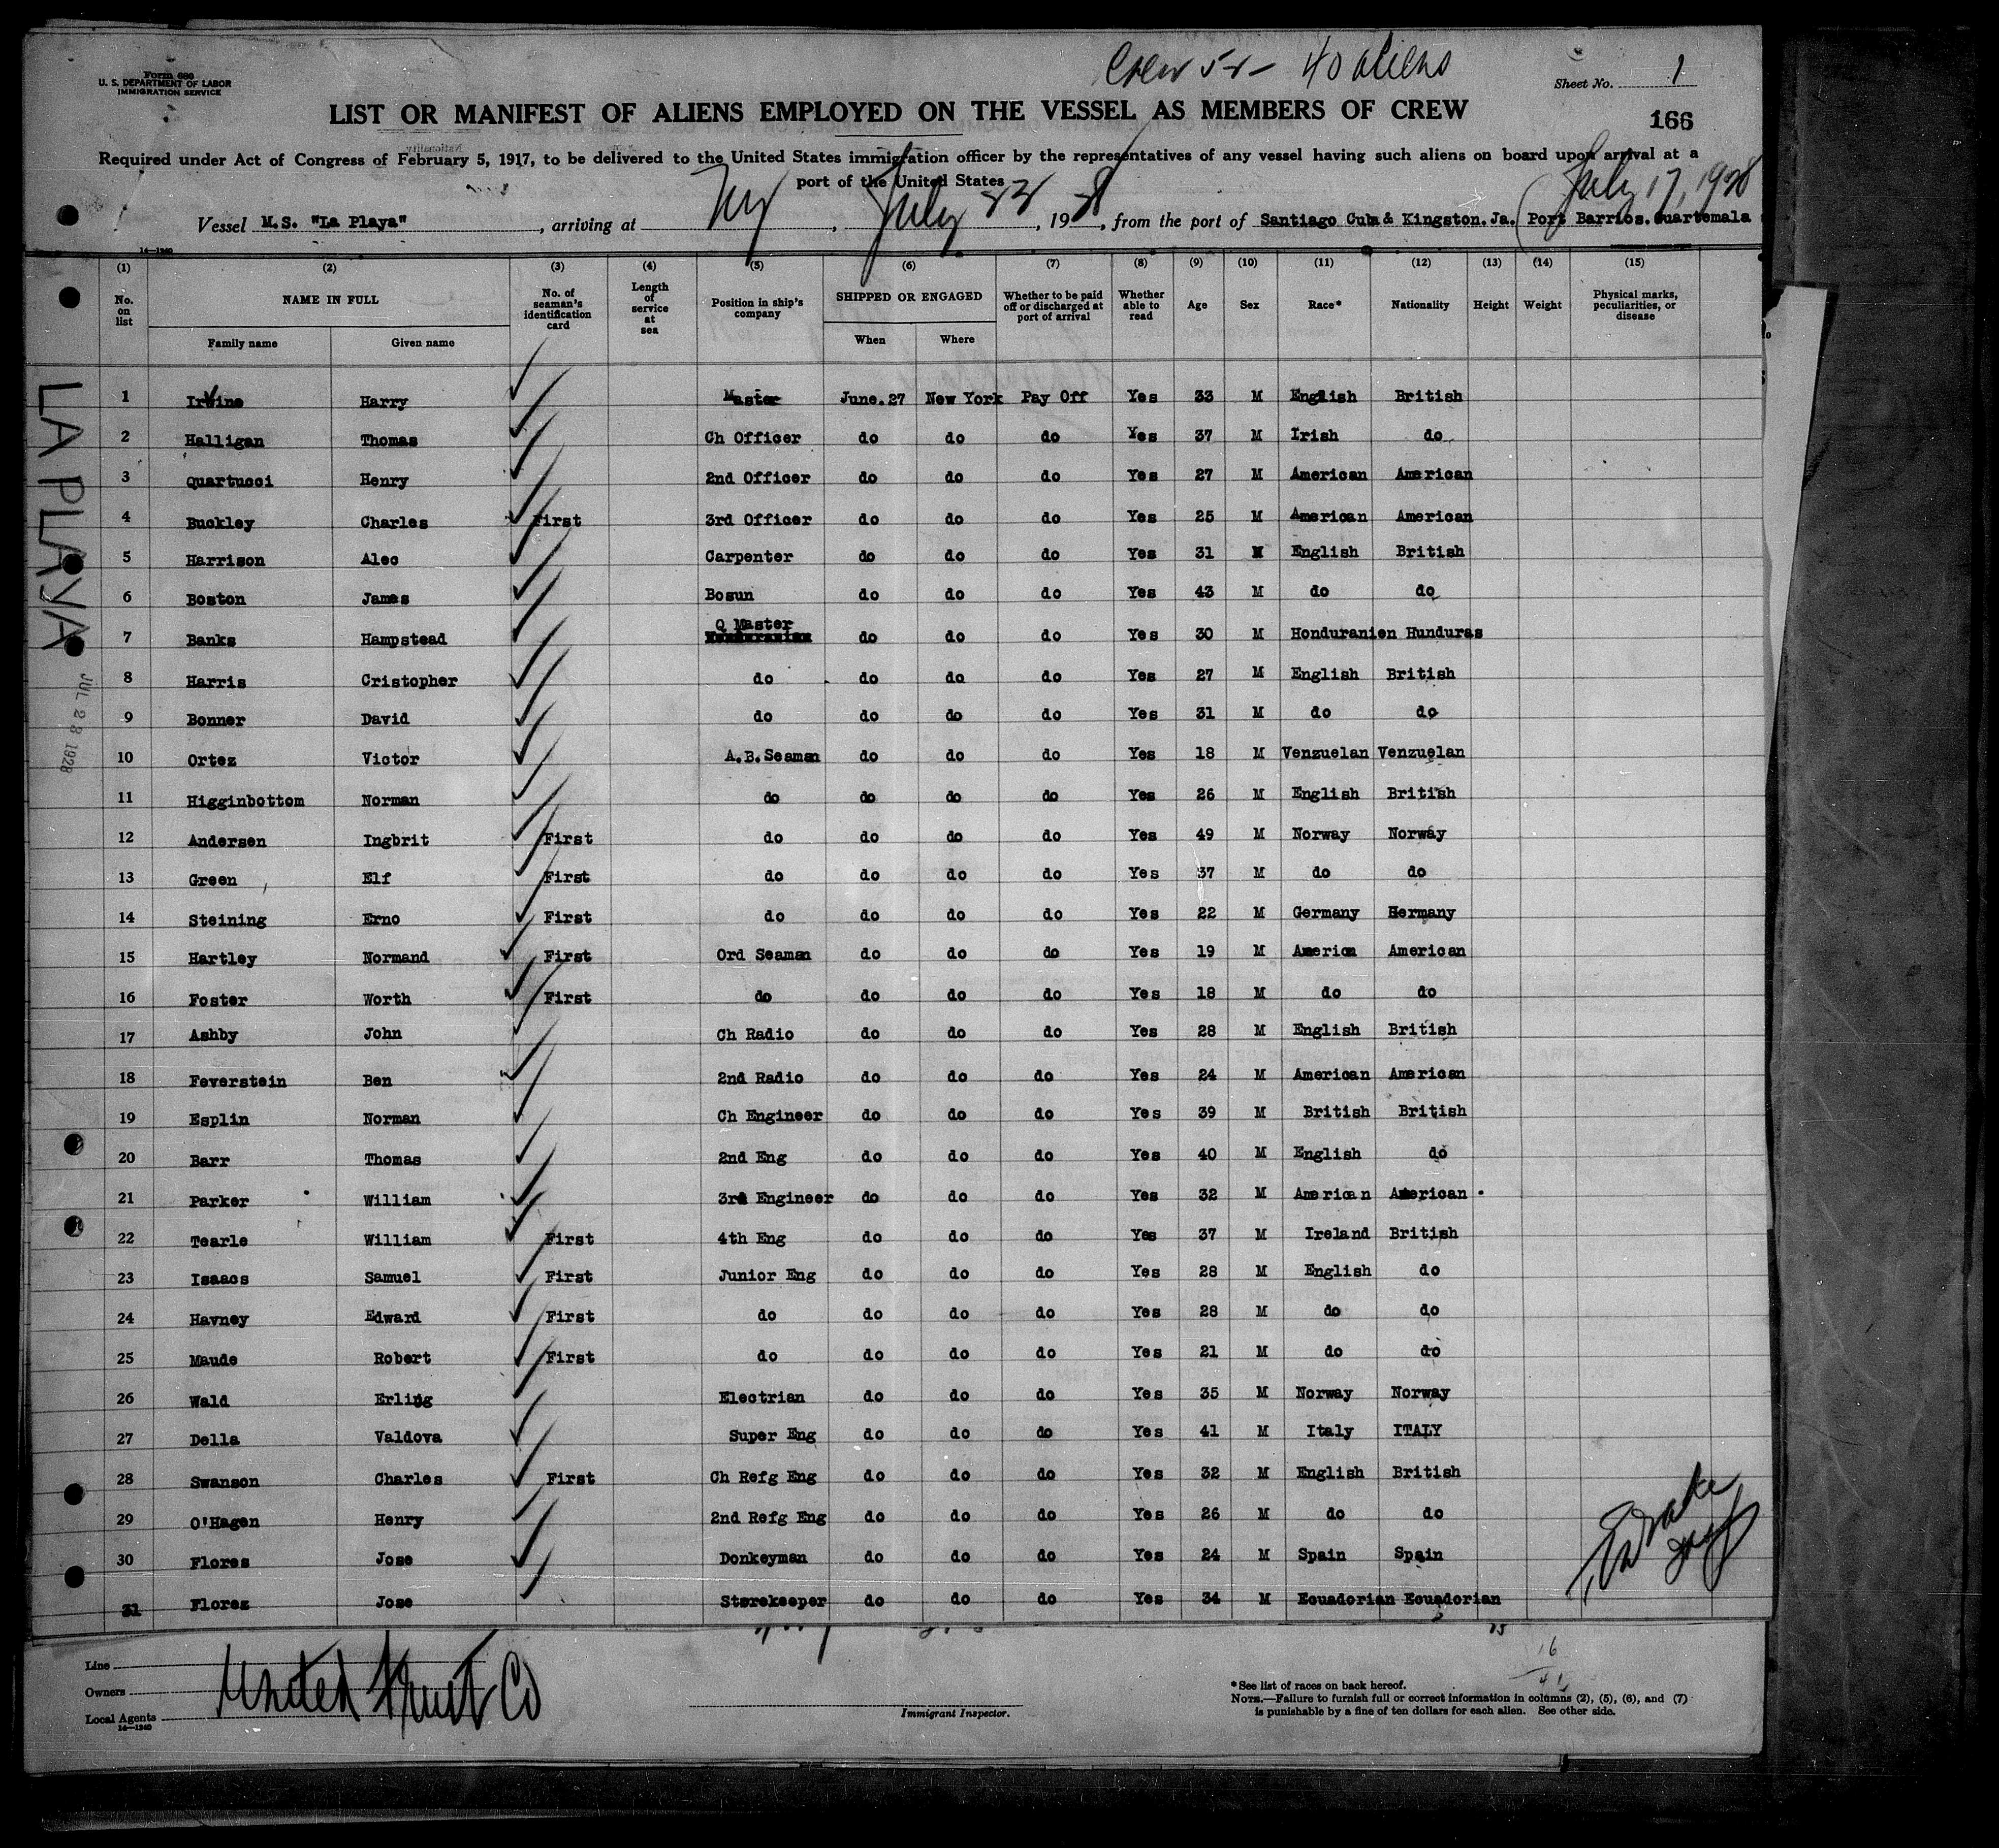 Crew 52 - 40 aliens
Form 680
U. S. DEPARTMENT OF LABOR
IMMIGRATION SERVICE
Sheet No. 1
LIST OR MANIFEST OF ALIENS EMPLOYED ON THE VESSEL AS MEMBERS OF CREW
166
Required under Act of Congress of February 5, 1917, to be delivered to the United States immigration officer by the representatives of any vessel having such aliens on board upon arrival at a
port of the United States
July 17, 1928
Vessel M.S. "La Playa", arriving at NY, July 23, 1928, from the port of Santiago Cuba & Kingston. Ja. (Port Barrios. Guartemala
14—1240
(1) (2) (3) (4) (5) (6) (7) (8) (9) (10) (11) (12) (13) (14) (15)
No. on list NAME IN FULL Family name Given name No. of seaman's identification card Length of service at sea Position in ship's company SHIPPED OR ENGAGED When Where Whether to be paid off or discharged at port of arrival Whether able to read Age Sex Race* Nationality Height Weight Physical marks, peculiarities, or disease
LA PLAYA
JUL 23 1928
1 Irvine Harry Master June. 27 New York Pay Off Yes 33 M English British
2 Halligan Thomas Ch Officer do do do Yes 37 M Irish do
3 Quartucci Henry 2nd Officer do do do Yes 27 M American American
4 Buckley Charles First 3rd Officer do do do Yes 25 M American American
5 Harrison Alec Carpenter do do do Yes 31 M English British
6 Boston James Bosun do do do Yes 43 M do do
7 Banks Hampstead Q Master do do do Yes 30 M Honduranien Hunduras
8 Harris Cristopher do do do do Yes 27 M English British
9 Bonner David do do do do Yes 31 M do do
10 Ortez Victor A.B.Seaman do do do Yes 18 M Venzuelan Venzuelan
11 Higginbottom Norman do do do do Yes 26 M English British
12 Andersen Ingbrit First do do do do Yes 49 M Norway Norway
13 Green Elf First do do do do Yes 37 M do do
14 Steining Erno First do do do do Yes 22 M Germany Hermany
15 Hartley Normand First Ord Seaman do do do Yes 19 M America American
16 Foster Worth First do do do do Yes 18 M do do
17 Ashby John Ch Radio do do do Yes 28 M English British
18 Feverstein Ben 2nd Radio do do do Yes 24 M American American
19 Esplin Norman Ch Engineer do do do Yes 39 M British British
20 Barr Thomas 2nd Eng do do do Yes 40 M English do
21 Parker William 3rd Engineer do do do Yes 32 M American American
22 Tearle William First 4th Eng do do do Yes 37 M Ireland British
23 Isaacs Samuel First Junior Eng do do do Yes 28 M English do
24 Havney Edward First do do do do Yes 28 M do do
25 Maude Robert First do do do do Yes 21 M do do
26 Wald Erling Electrian do do do Yes 35 M Norway Norway
27 Della Valdova Super Eng do do do Yes 41 M Italy ITALY
28 Swanson Charles First Ch Refg Eng do do do Yes 32 M English British
29 O'Hagen Henry 2nd Refg Eng do do do Yes 26 M do do
30 Flores Jose Donkeyman do do do Yes 24 M Spain Spain
31 Florez Jose Storekeeper do do do Yes 34 M Ecuadorian Ecuadorian
Line
Owners
Local Agents
United Fruit Co
14—1240
Immigrant Inspector.
16
*See list of races on back hereof.
NOTE.—Failure to furnish full or correct information in columns (2), (5), (6), and (7)
is punishable by a fine of ten dollars for each alien. See other side.